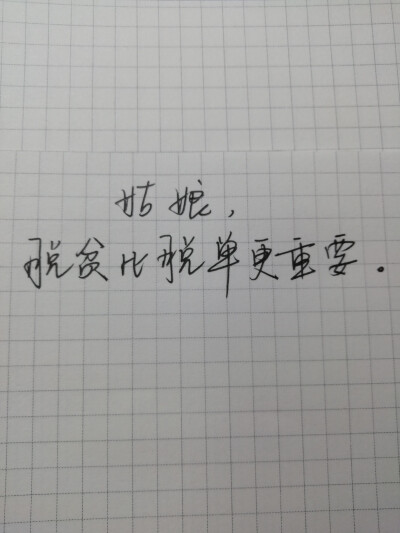 姑娘,
脱贫比脱单更重要.